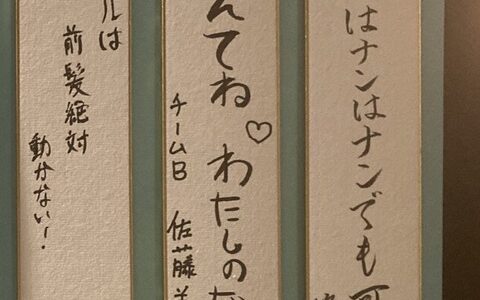 はナンはナンでも
んてね♡わたしの
チームB 佐藤
ルは
前髪絶対
動かない！